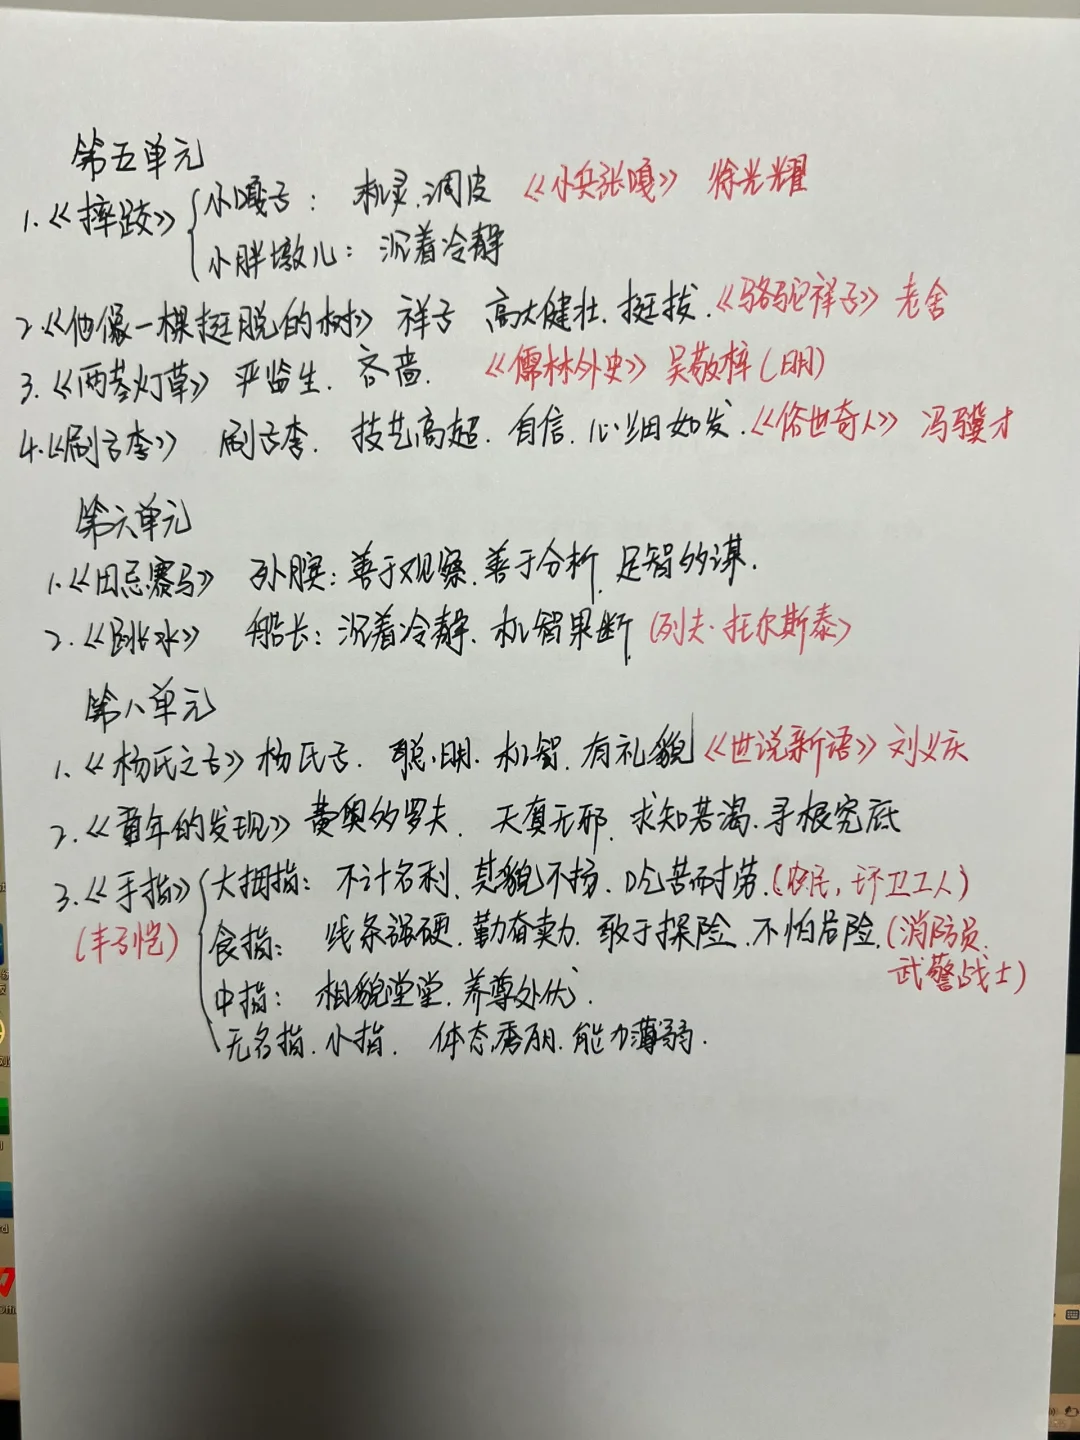 第五单元
1.《摔跤》 小嘎子： 机灵、调皮 《小兵张嘎》 徐光耀
小胖墩儿： 沉着冷静
2.《他像一棵挺脱的树》 祥子 高大健壮、挺拔.《骆驼祥子》 老舍
3.《两茎灯草》 严监生. 吝啬. 《儒林外史》 吴敬梓（明）
4.《刷子李》 刷子李. 技艺高超. 自信. 心细如发.《俗世奇人》 冯骥才
第六单元
1.《田忌赛马》 孙膑：善于观察、善于分析、足智多谋.
2.《跳水》 船长：沉着冷静、机智果断（列夫·托尔斯泰）
第八单元
1.《杨氏之子》杨氏子. 聪明. 机智. 有礼貌《世说新语》 刘义庆
2.《童年的发现》费奥多罗夫. 天真无邪. 求知若渴. 寻根究底
3.《手指》 大拇指： 不计名利、其貌不扬、吃苦耐劳.（农民, 环卫工人）
（丰子恺） 食指： 线条强硬. 勤奋卖力. 敢于探险、不怕危险.（消防员.
武警战士）
中指： 相貌堂堂. 养尊处优.
无名指. 小指. 体态秀丽. 能力薄弱.